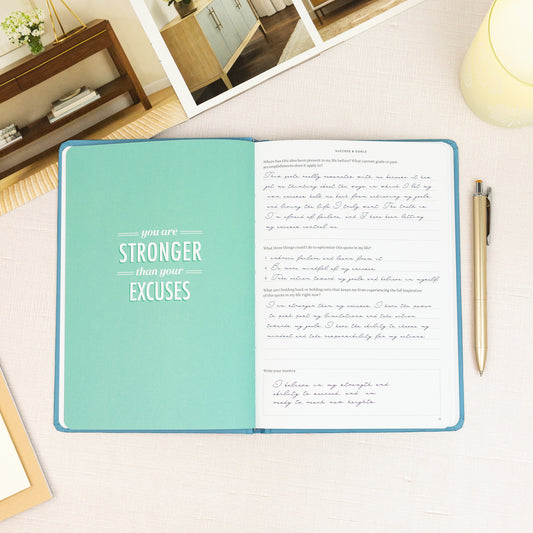 you are
STRONGER
than your
EXCUSES
SUCCESS & GOALS
Where has this idea been present in my life before? What current goals or past
accomplishments does it apply to?
This quote really resonates with me because it has
got me thinking about the ways in which I let my
own excuses hold me back from achieving my goals
and living the life I truly want. The truth is
I'm afraid of failure, and I have been letting
my excuses control me.
What three things could I do to epitomize this quote in my life?
1 embrace failure and learn from it
2 Be more mindful of my excuses
3 Take action toward my goals and believe in myself
What am I holding back or holding onto that keeps me from experiencing the full inspiration
of this quote in my life right now?
I am stronger than my excuses. I have the power
to push past my limitations and take action
towards my goals. I have the ability to choose my
mindset and take responsibility for my actions.
Write your mantra
I believe in my strength and
ability to succeed, and am
ready to reach new heights.